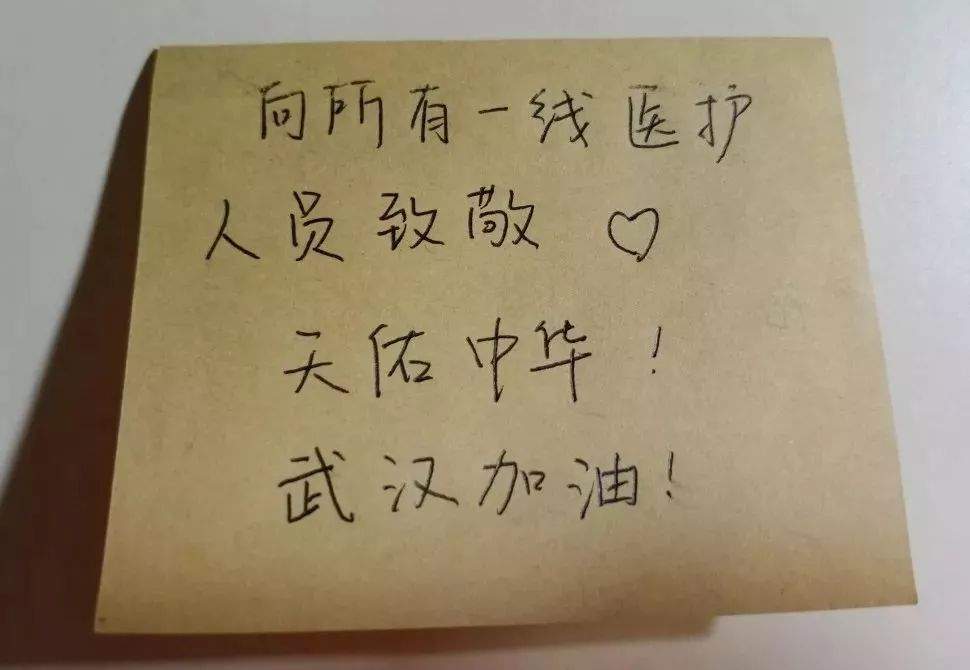 向所有一线医护
人员致敬♡
天佑中华！
武汉加油！